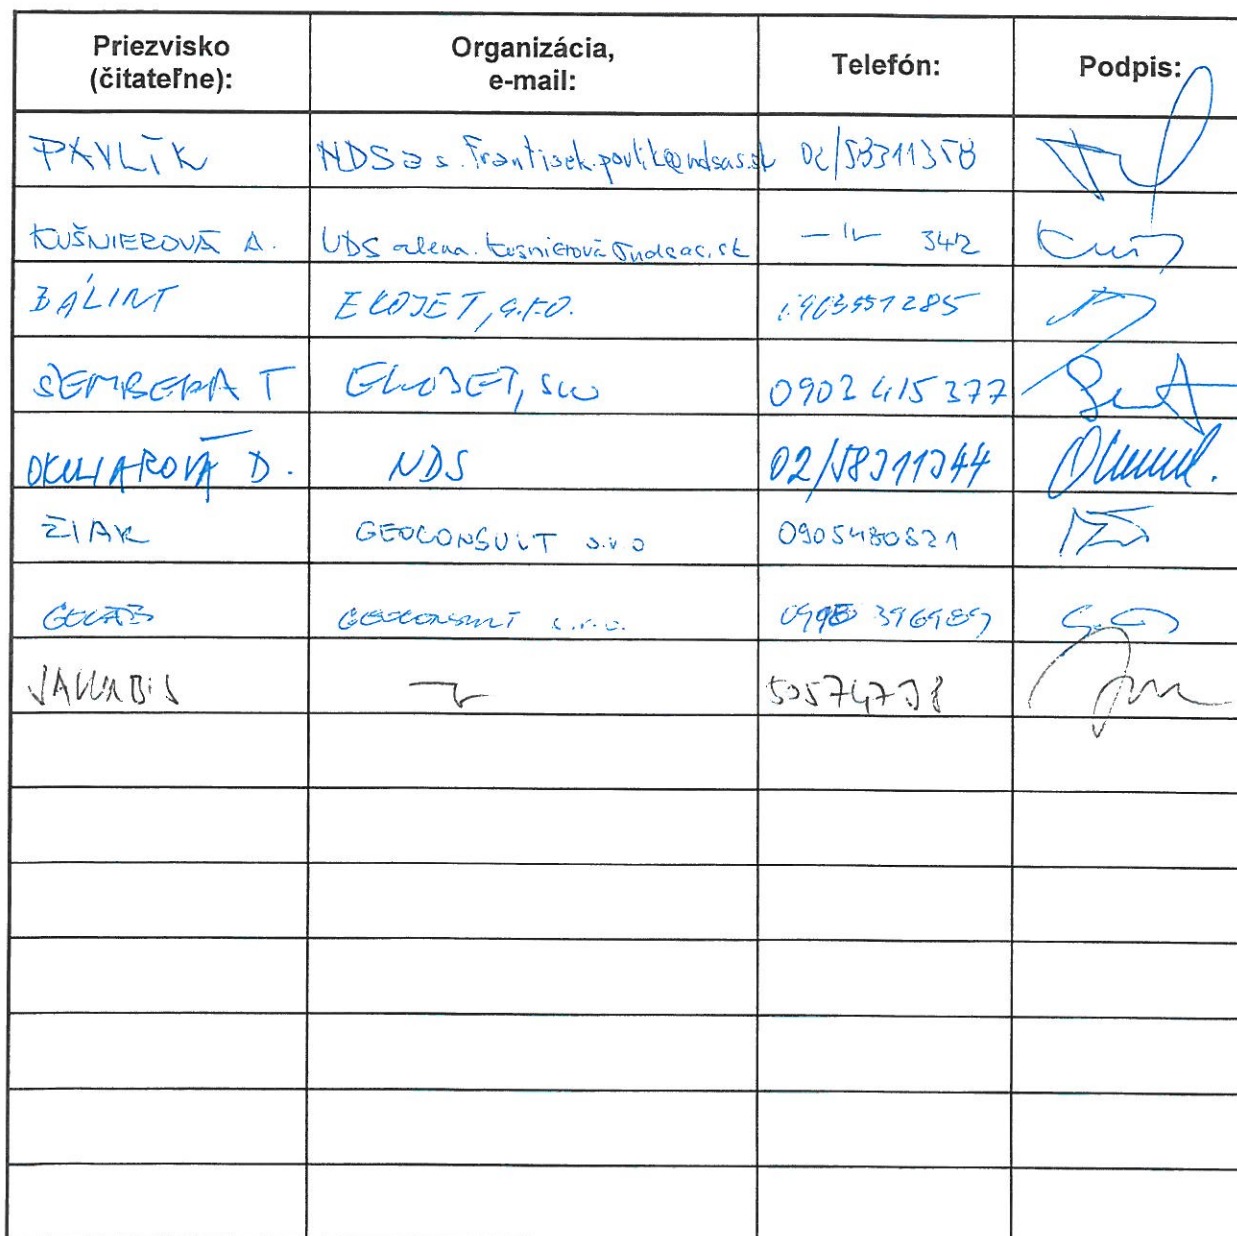 Priezvisko (čitateľne): Organizácia, e-mail: Telefón: Podpis:
PAVLÍK NDS a s. frantisek.pavlik@ndsas.sk 02/58311358
KUŠNIEROVÁ A. NDS alena.kusnierová@ndsas.sk —11— 342
BÁLINT EKOJET, s.r.o.
SEMBERA T EKOJET, sro 0902 415 377
OKULIAROVÁ D. NDS 02/58311344
ŽIAK GEOCONSULT s.r.o 0905480821
GEOCONSULT s.r.o.
JAKUBIS 50574738